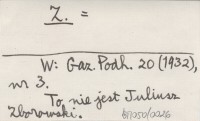 Z. =
W: Gaz. Podh. 20 (1932),
nr 3.
To nie jest Juliusz
Zborowski.